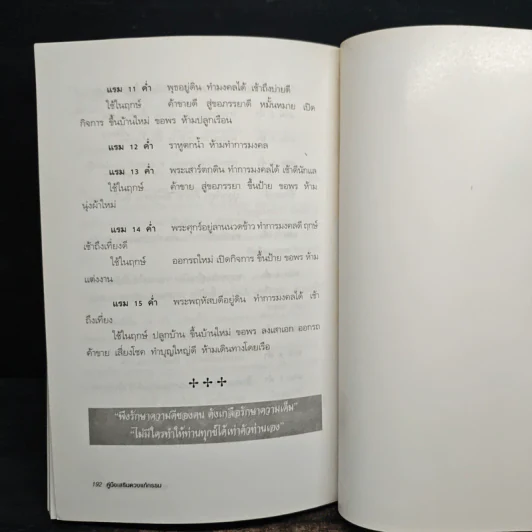 แรม 11 ค่ำ พุธอยู่ดิน ทำมงคลได้ เช้าถึงบ่ายดี
ใช้ในฤกษ์ ค้าขายดี สู่ขอภรรยาดี หมั้นหมาย เปิด
กิจการ ขึ้นบ้านใหม่ ขอพร ห้ามปลูกเรือน
แรม 12 ค่ำ ราหูตกน้ำ ห้ามทำการมงคล
แรม 13 ค่ำ พระเสาร์ตกดิน ทำการมงคลได้ เช้าดีนักแล
ใช้ในฤกษ์ ค้าขาย สู่ขอภรรยา ขึ้นป้าย ขอพร ห้าม
นุ่งผ้าใหม่
แรม 14 ค่ำ พระศุกร์อยู่ลานนวดข้าว ทำการมงคลดี ฤกษ์
เช้าถึงเที่ยงดี
ใช้ในฤกษ์ ออกรถใหม่ เปิดกิจการ ขึ้นป้าย ขอพร ห้าม
แต่งงาน
แรม 15 ค่ำ พระพฤหัสบดีอยู่ดิน ทำการมงคลได้ เช้า
ถึงเที่ยง
ใช้ในฤกษ์ ปลูกบ้าน ขึ้นบ้านใหม่ ขอพร ลงเสาเอก ออกรถ
ค้าขาย เสี่ยงโชค ทำบุญใหญ่ดี ห้ามเดินทางโดยเรือ
"พึงรักษาความดีของตน ดังเกลือรักษาความเค็ม"
"ไม่มีใครทำให้ท่านทุกข์ได้เท่าตัวท่านเอง"
192 คู่มือเสริมดวงแก้กรรม